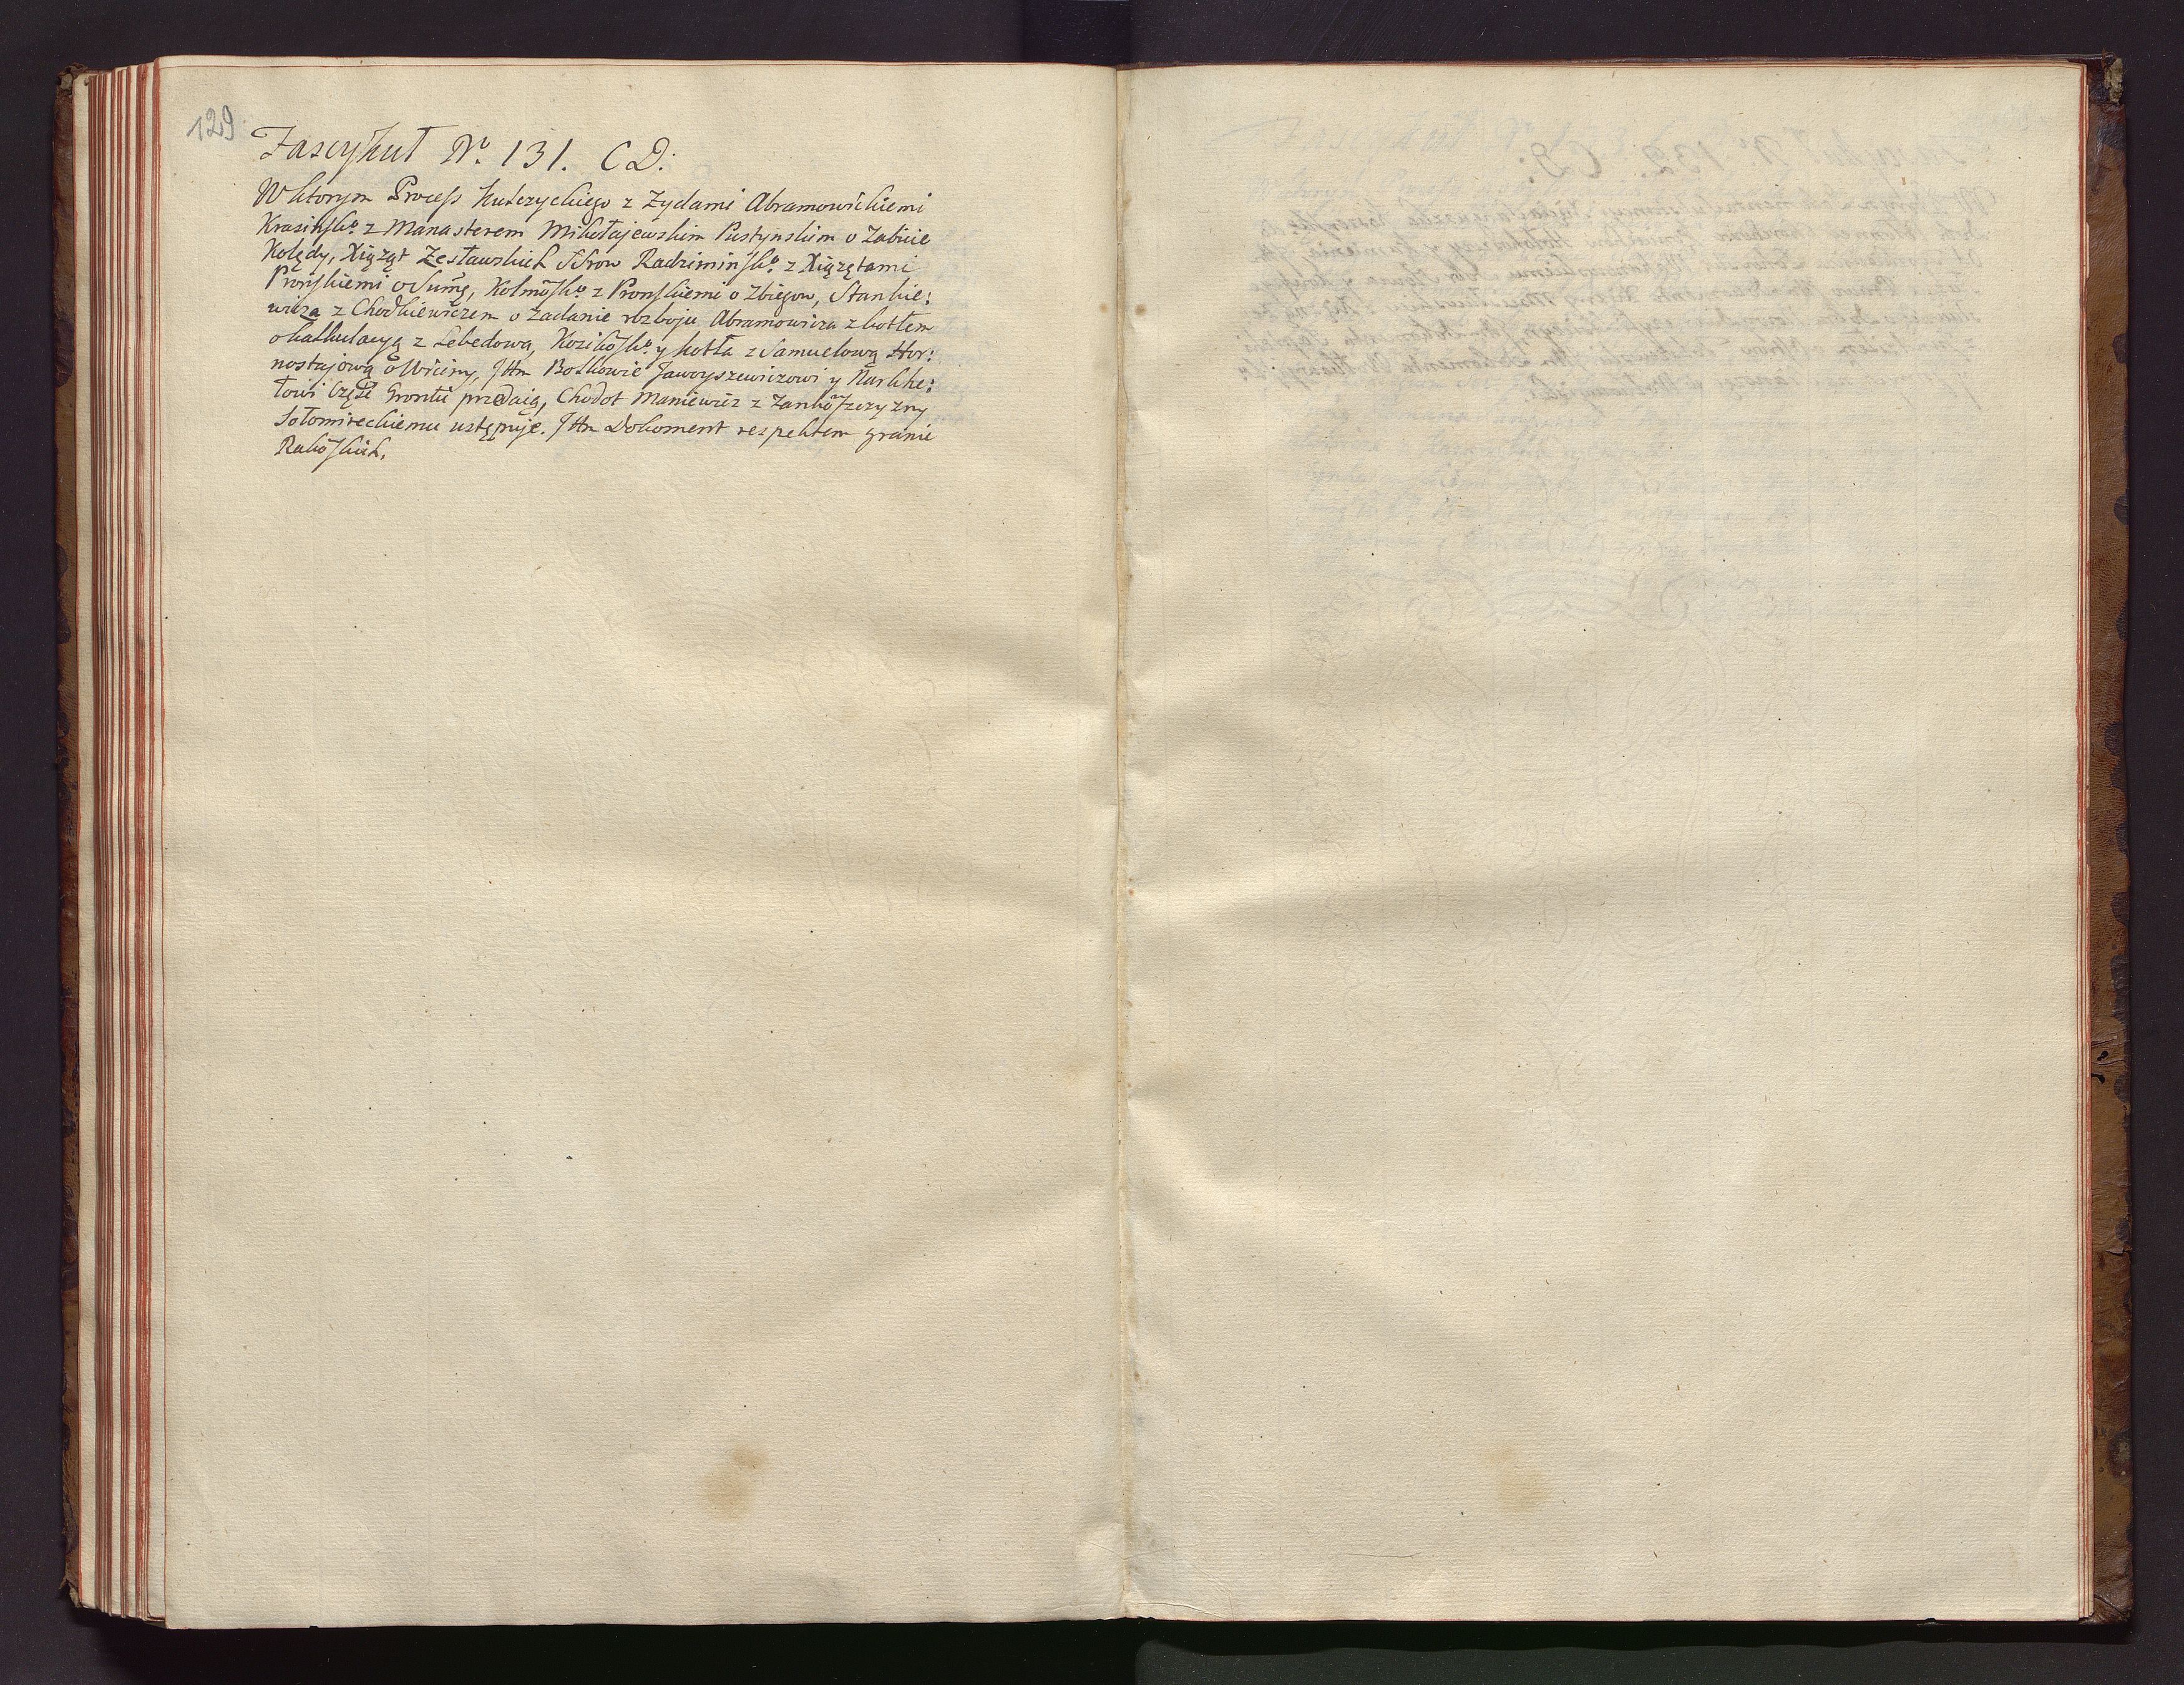 129
Fascykuł No. 131. CD:
W ktorym Process Kulczyckiego z Zydami Abramowickiemi
Krasińsko z Manasterem Mikołajewskim Pustynskim o Zabicie
Kolędy, Xiążąt Zesławskich SSrow Radzimińsko z Xiążętami
Prońskiemi o Sum̃ę, Kolmõsko z Pronskiemi o Zbiegow, Stankie:
wicza z Chodkiewiczem o zadanie rozboju Abramowicza z kotłem
o kalkulacyą z Lebedową, Kozikõsko y kotła z Samuelową Hor:
nostajową o Wiciny, Jttn Botkowie Jaworyszewiczowi y Narkhe:
towi Część Gruntu przedaią, Chodot Maniewicz z Zankõszczyzny
Sołomireckiemu ustępuje. Jttn Dokoment respektem granic
Rakõskich.